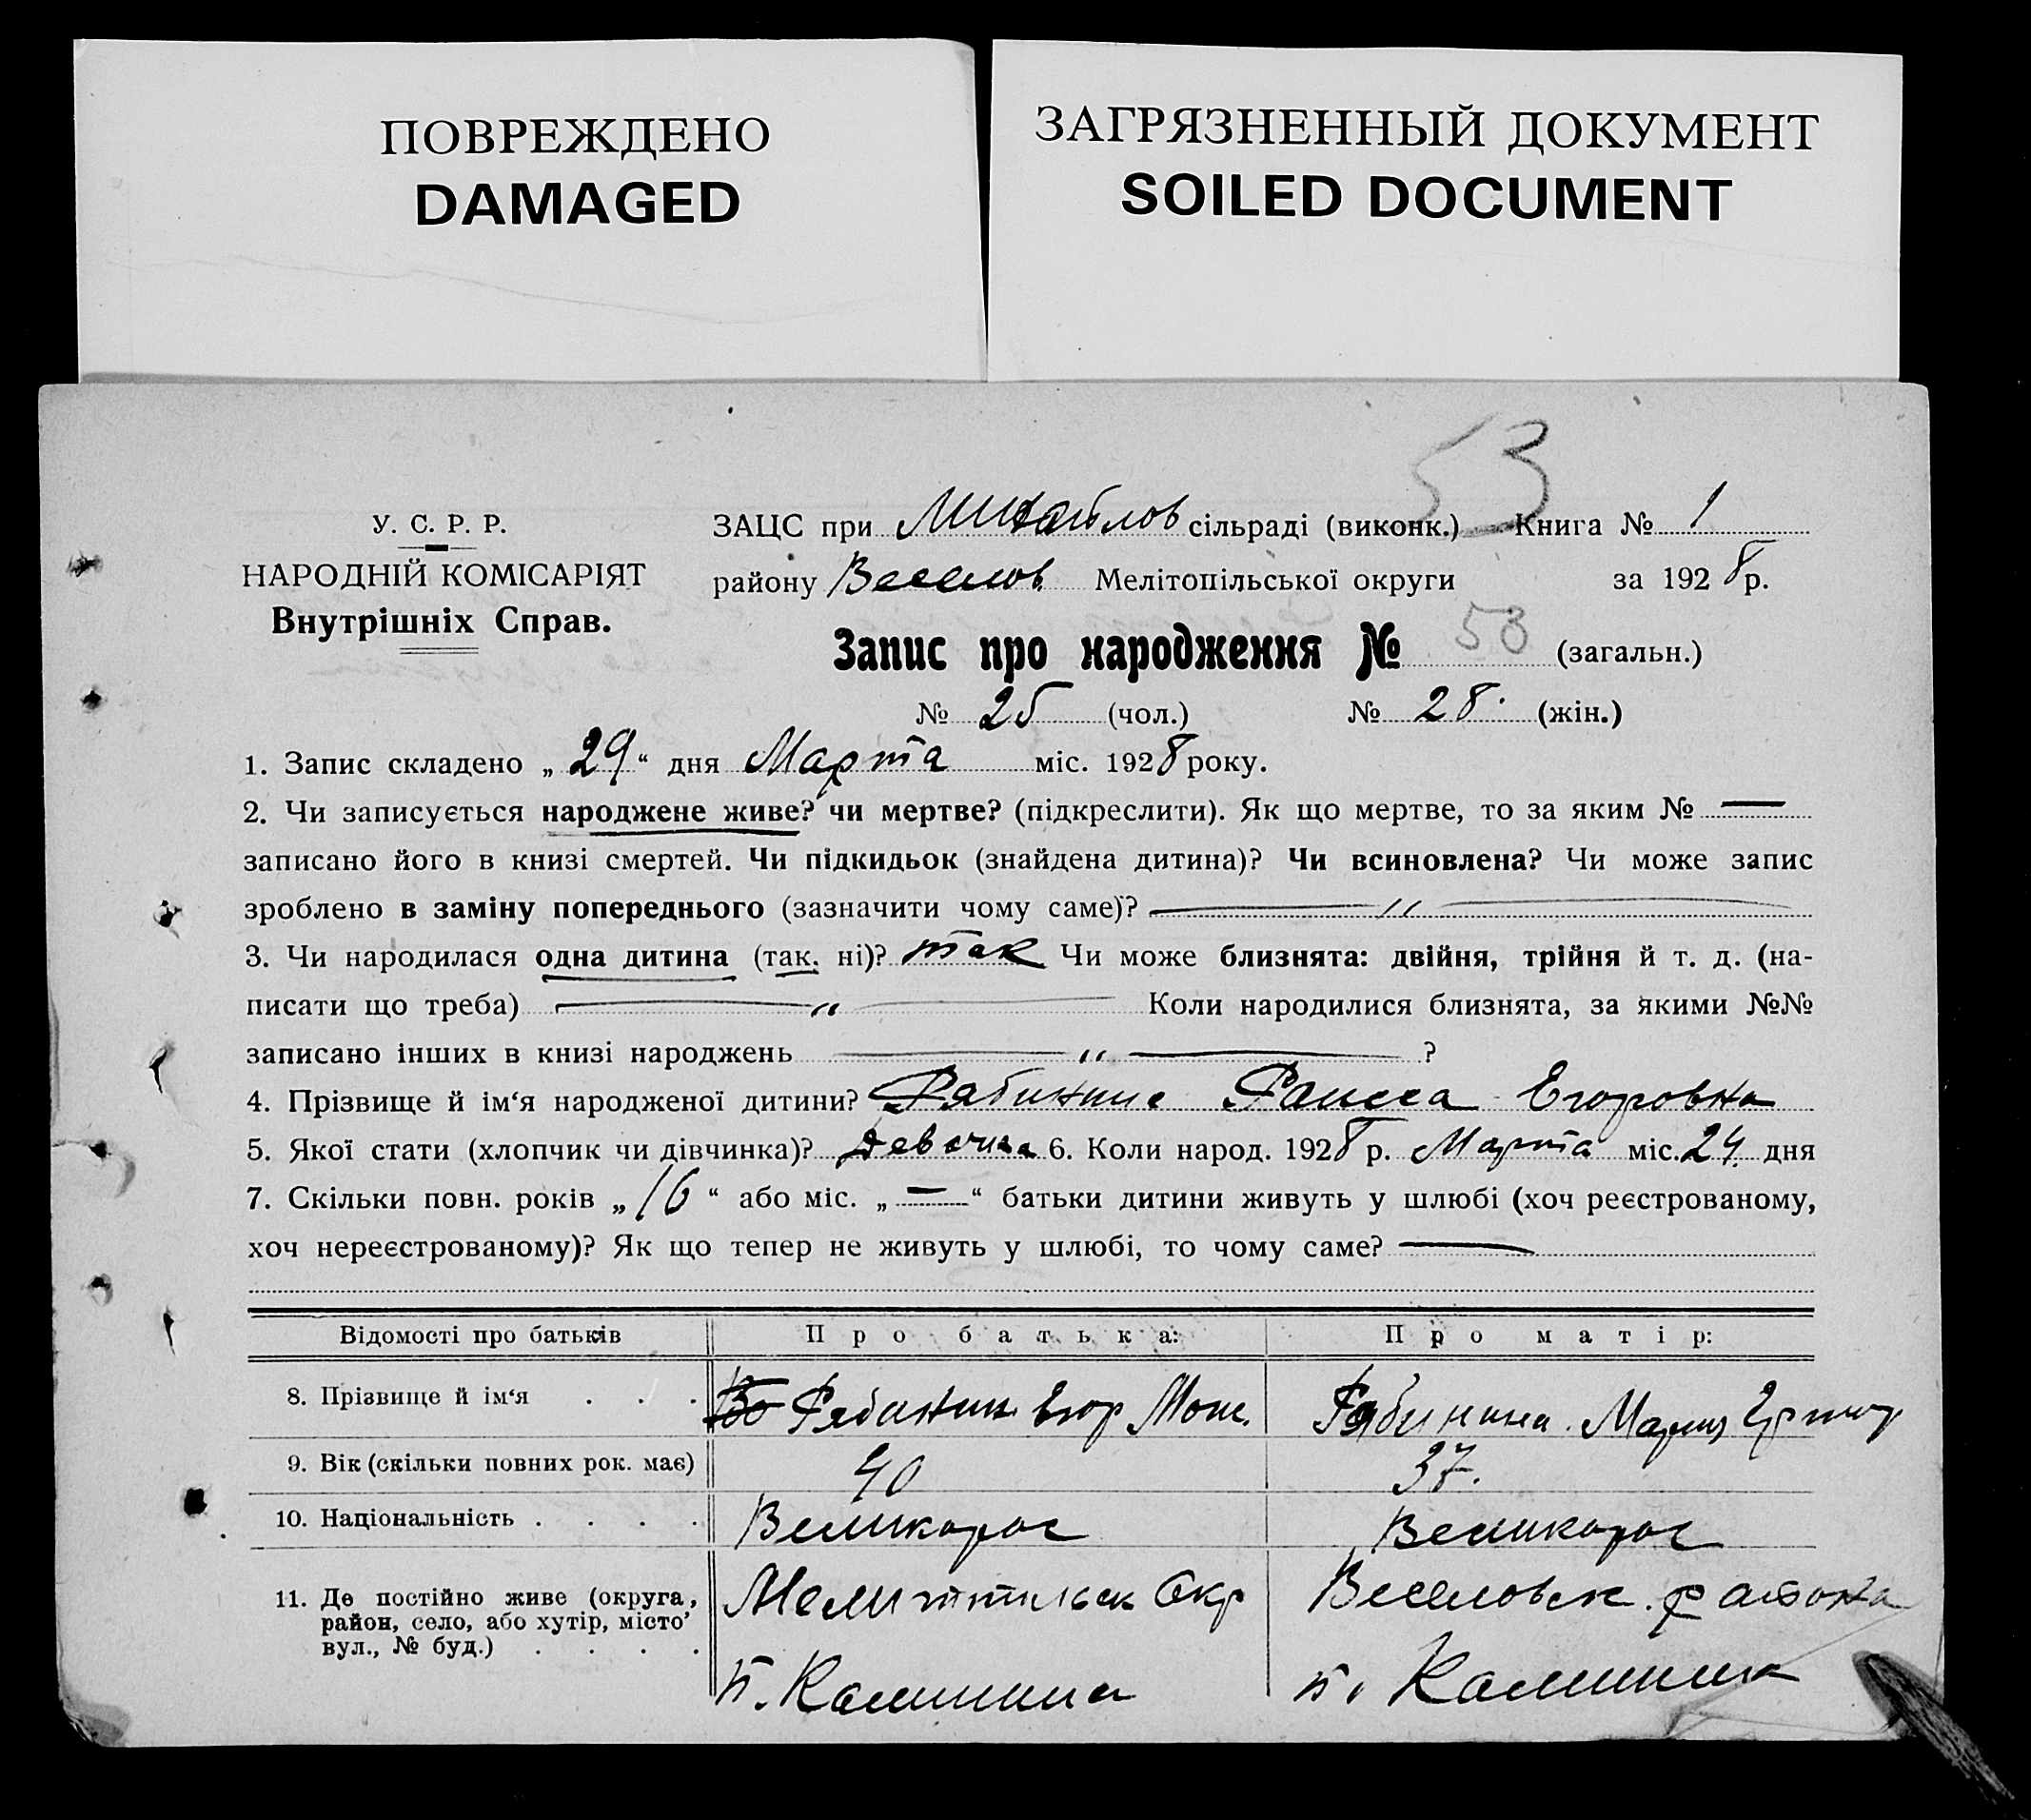 ПОВРЕЖДЕНО
DAMAGED
ЗАГРЯЗНЕННЫЙ ДОКУМЕНТ
SOILED DOCUMENT
53
У. С. Р. Р.
НАРОДНІЙ КОМІСАРІЯТ
Внутрішніх Справ.
ЗАЦС при Михайлов сільраді (виконк.) Книга № 1
району Веселов. Мелітопільської округи за 1928 р.
Запис про народження № 53 (загальн.)
№ 25 (чол.) № 28. (жін.)
1. Запис складено „29“ дня Марта міс. 1928 року.
2. Чи записується народжене живе? чи мертве? (підкреслити). Як що мертве, то за яким № —
записано його в книзі смертей. Чи підкидьок (знайдена дитина)? Чи всиновлена? Чи може запис
зроблено в заміну попереднього (зазначити чому саме)? — ,, —
3. Чи народилася одна дитина (так. ні)? так Чи може близнята: двійня, трійня й т. д. (на-
писати що треба) — ,, — Коли народилися близнята, за якими №№
записано інших в книзі народжень — ,, — ?
4. Прізвище й ім‘я народженої дитини? Раисса Егоровна
5. Якої стати (хлопчик чи дівчинка)? 6. Коли народ. 1928 р. Марта міс. 24 дня
7. Скільки повн. років „16“ або міс. „—“ батьки дитини живуть у шлюбі (хоч реєстрованому,
хоч нереєстрованому)? Як що тепер не живуть у шлюбі, то чому саме? —
Відомості про батьків Про батька: Про матір:
8. Прізвище й ім‘я . . . Рябинин Егор Рябинина Мария
9. Вік (скільки повних рок. має) 40 37.
10. Національність . . . . Великорос Великорос
11. Де постійно живе (округа, район, село, або хутір, місто’ вул., № буд.) . . . . Окр Веселовск. района
п. Калинина п. Калинина